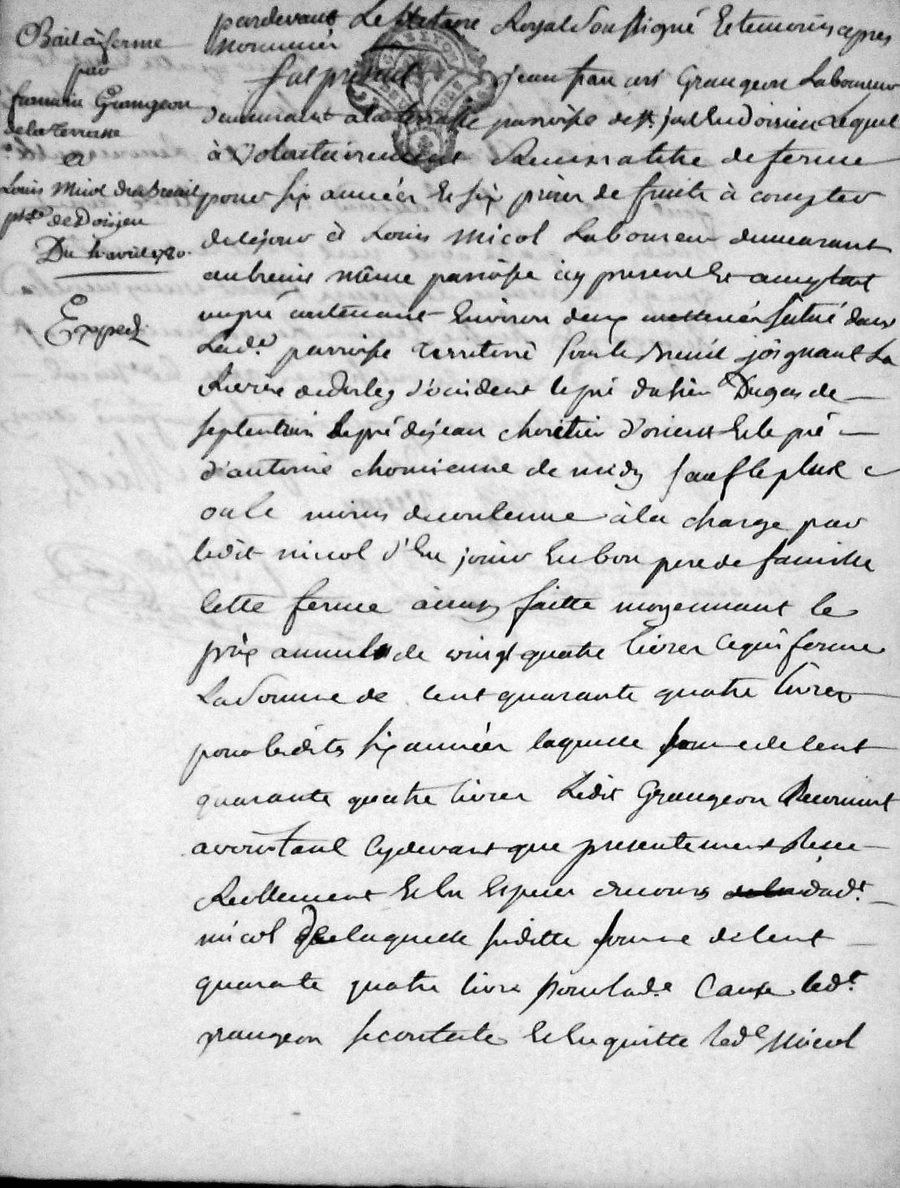 Bail à ferme
par
Grangeon
de la terrasse
a
Louis Micol du Breuil
psse de Doisieu
Du avril
Exped.
pardevant Le Nottaire Royal soussigné Et temoins apres
nommés
fut présent jean francois Grangeon Laboureur
demeurant a la terrasse parroisse de st julien doisieu Lequel
à volontairement Remis a titre de ferme
pour six années Et six prises de fruits à compter
de ce jour à Louis Micol Laboureur demeurant
au breuil même parroisse icy present Et acceptant
un pré contenant Environ deux situé dans
Lade. parroisse territoire sous le Breuil joignant La
Riviere de dorley d'occident le pré du sieur Dugas de
septentrion le pré de jean choretier d'orient Et le pré
d'antoine chomienne de midy sauf le plus
ou le moins de contenue à la charge par
ledit micol d'En jouir En bon pere de famille
cette ferme ainsy faitte moyennant le
prix annuel de vingt quatre livres ce qui forme
La somme de cent quarante quatre livres
pour lesdites six années laquelle somme de cent
quarante quatre livres Ledit Grangeon Reconnait
avoir tant cy devant que presentement Receu
Reellement Et En Especes de cours dudt.
micol De laquelle susditte somme de cent
quarante quatre livres pour lade. Cause ledt.
grangeon se contente Et En quitte ledt Micol